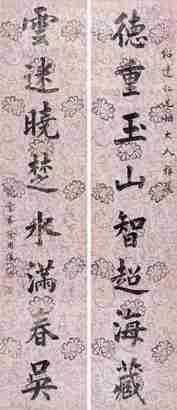 仁兄姻大人
德重玉山智超海藏
雲迷曉楚水滿春吳